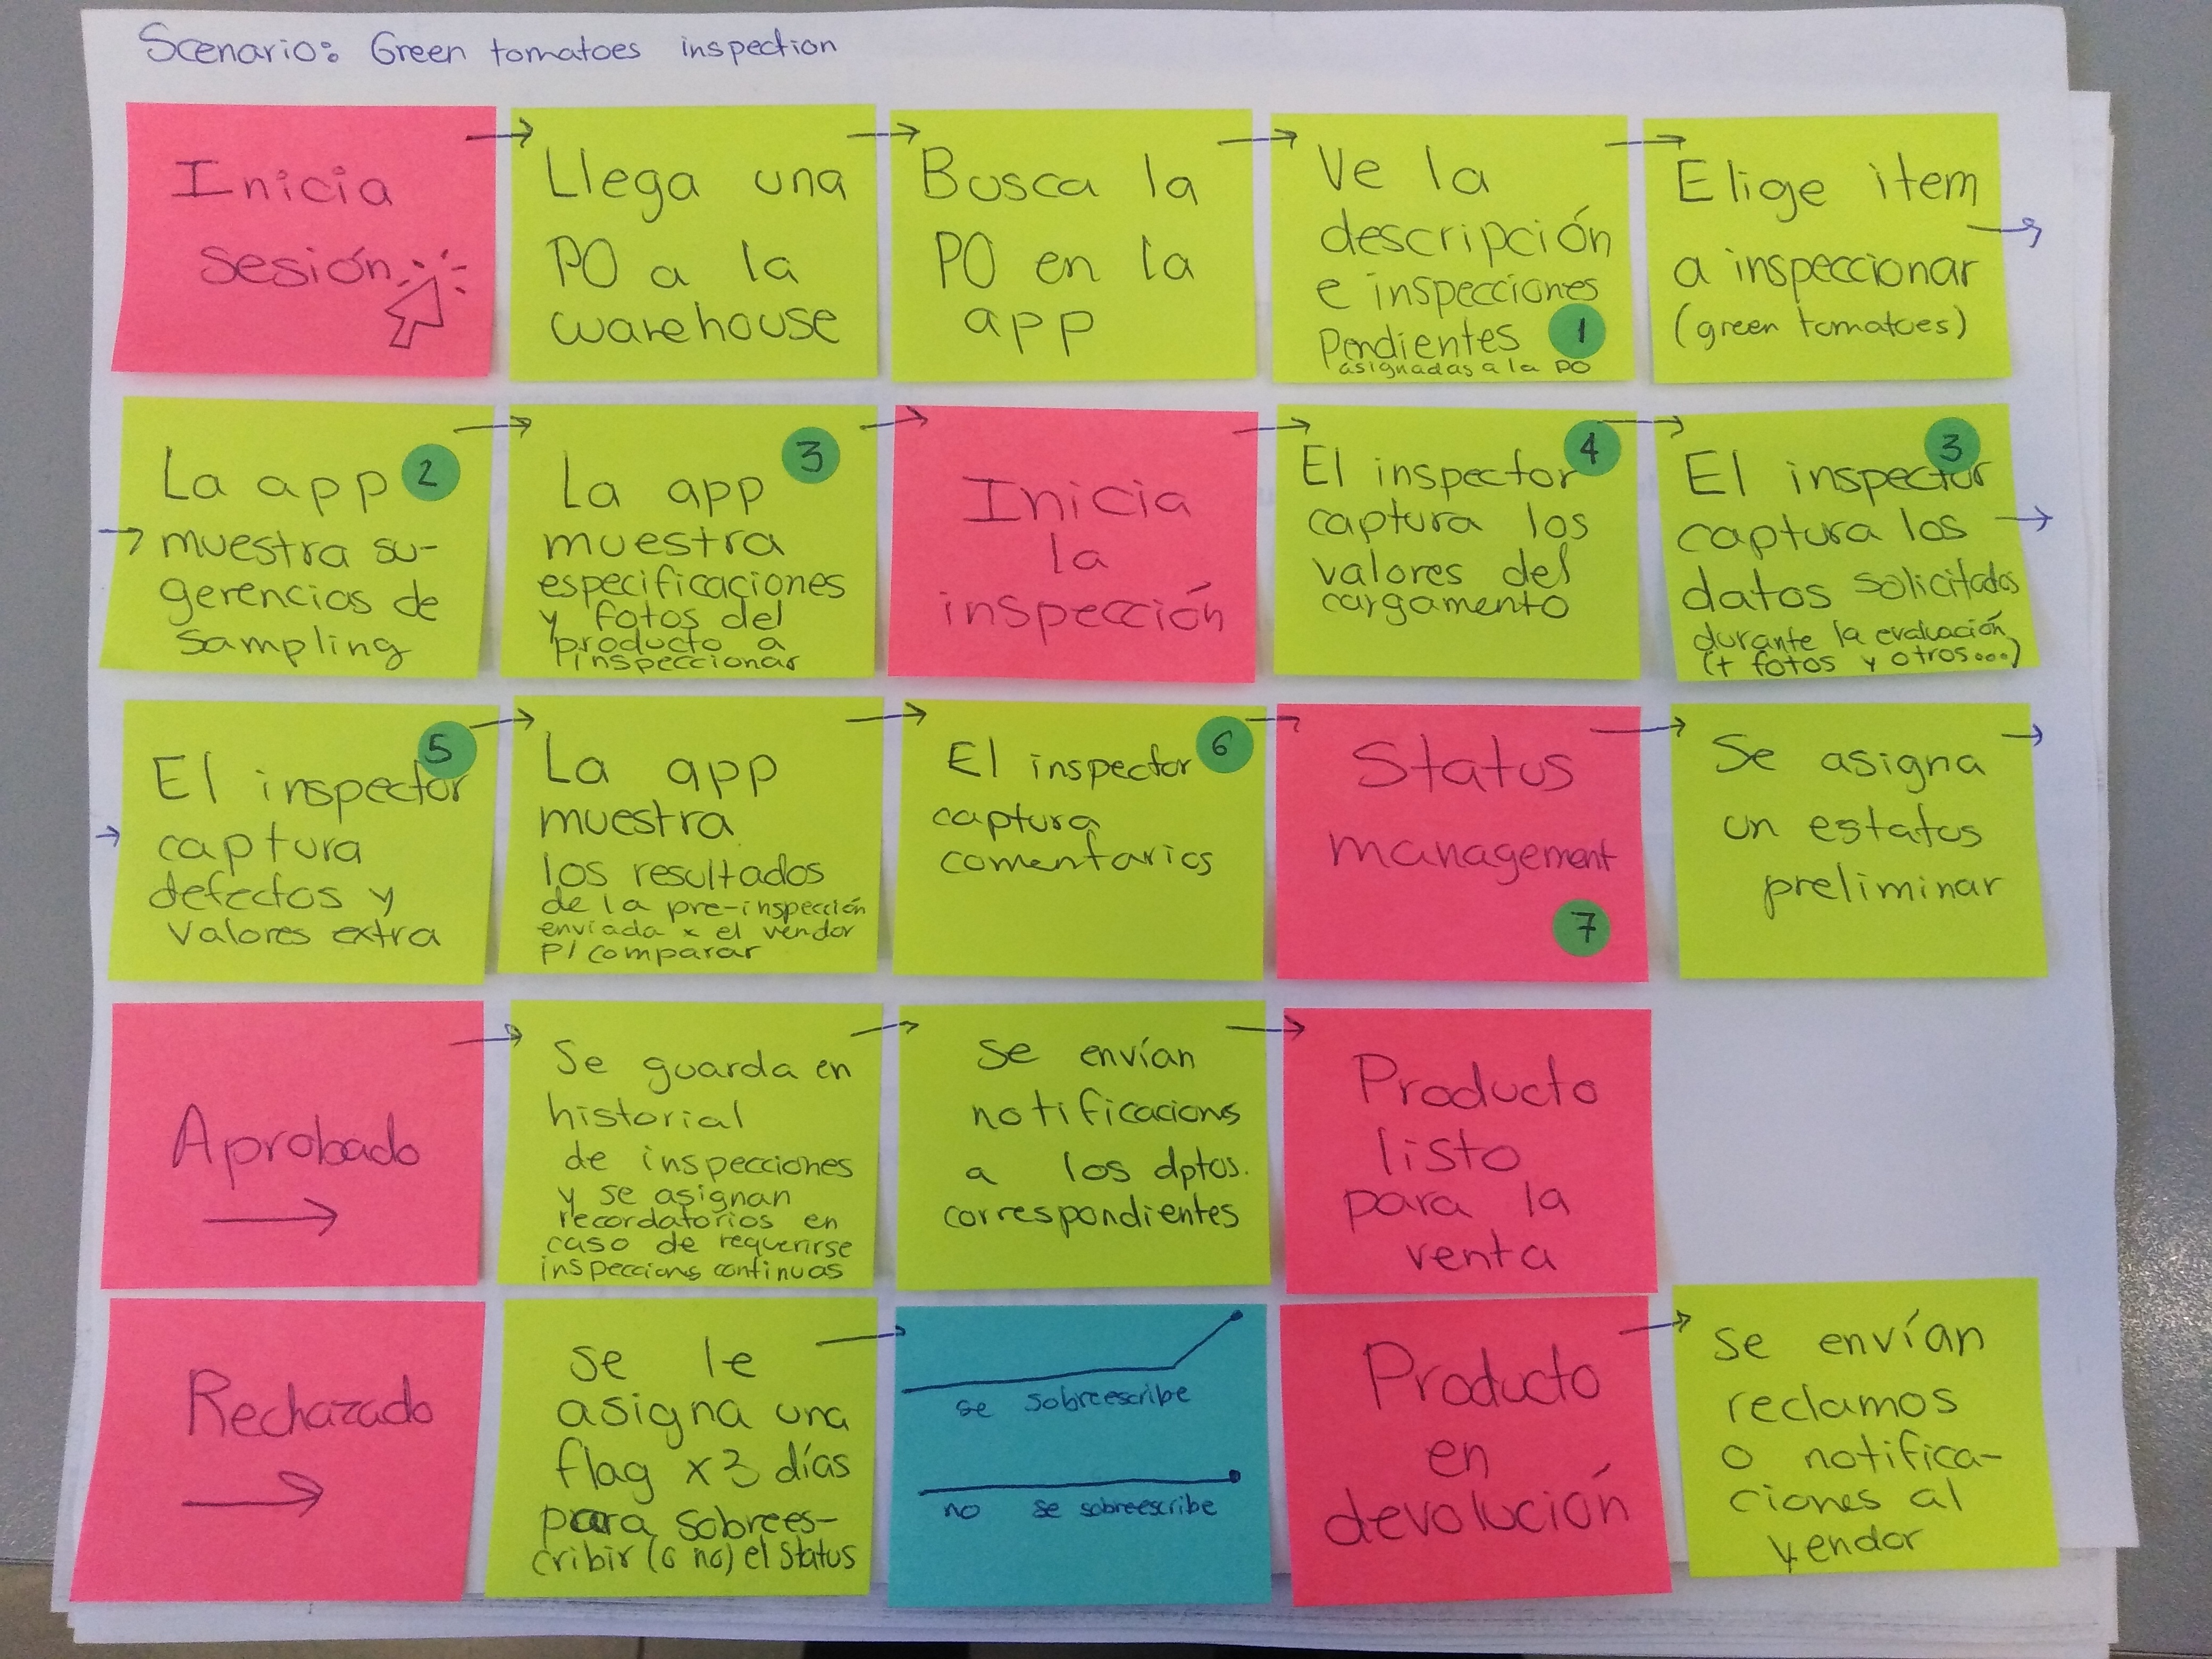 Scenario: Green tomatoes inspection
Inicia
sesión
Llega una
PO a la
warehouse
Busca la
PO en la
app
Ve la
descripción
e inspecciones
Pendientes 1
asignadas a la PO
Elige item
a inspeccionar
(green tomatoes)
La app 2
muestra su-
gerencias de
sampling
3
La app
muestra
especificaciones
y fotos del
producto a
inspeccionar
Inicia
la
inspección
4
El inspector
captura los
valores del
cargamento
3
El inspector
captura los
datos solicitados
durante la evaluación
(+ fotos y otros...)
5
El inspector
captura
defectos y
valores extra
La app
muestra
los resultados
de la pre-inspección
enviada x el vendor
p/ comparar
6
El inspector
captura
comentarios
Status
management
7
Se asigna
un estatus
preliminar
Aprobado
Se guarda en
historial
de inspecciones
y se asignan
recordatorios en
caso de requerirse
inspeccions continuas
Se envían
notificacions
a los dptos.
correspondientes
Producto
listo
para la
venta
Rechazado
se le
asigna una
flag x3 días
para sobrees-
cribir (o no) el status
se sobreescribe
no se sobreescribe
Producto
en
devolución
Se envían
reclamos
o notifica-
ciones al
vendor